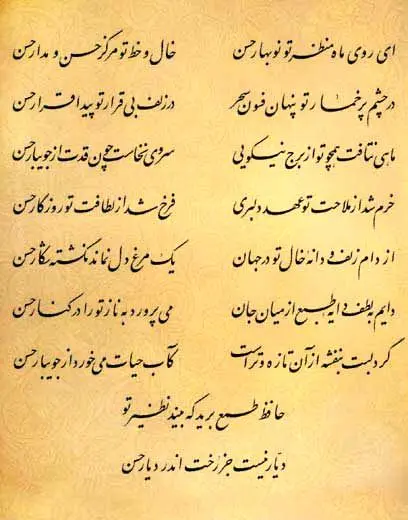 ای روی ماه منظر تو نوبهار حسن خال و خط تو مرکز حسن و مدار حسن
در چشم پر خمار تو پنهان فسون سحر در زلف بی قرار تو پیدا قرار حسن
ماهی نتافت همچو تو از برج نیکویی سروی نخاست چون قدت از جویبار حسن
خرم شد از ملاحت تو عهد دلبری فرخ شد از لطافت تو روزگار حسن
از دام زلف و دانه خال تو در جهان یک مرغ دل نماند نگشته شکار حسن
دایم به لطف دایه طبع از میان جان می پرورد به ناز تو را در کنار حسن
گرد لبت بنفشه از آن تازه و تر است کآب حیات می خورد از جویبار حسن
حافظ طمع برید که بیند نظیر تو
دیار نیست جز رخت اندر دیار حسن